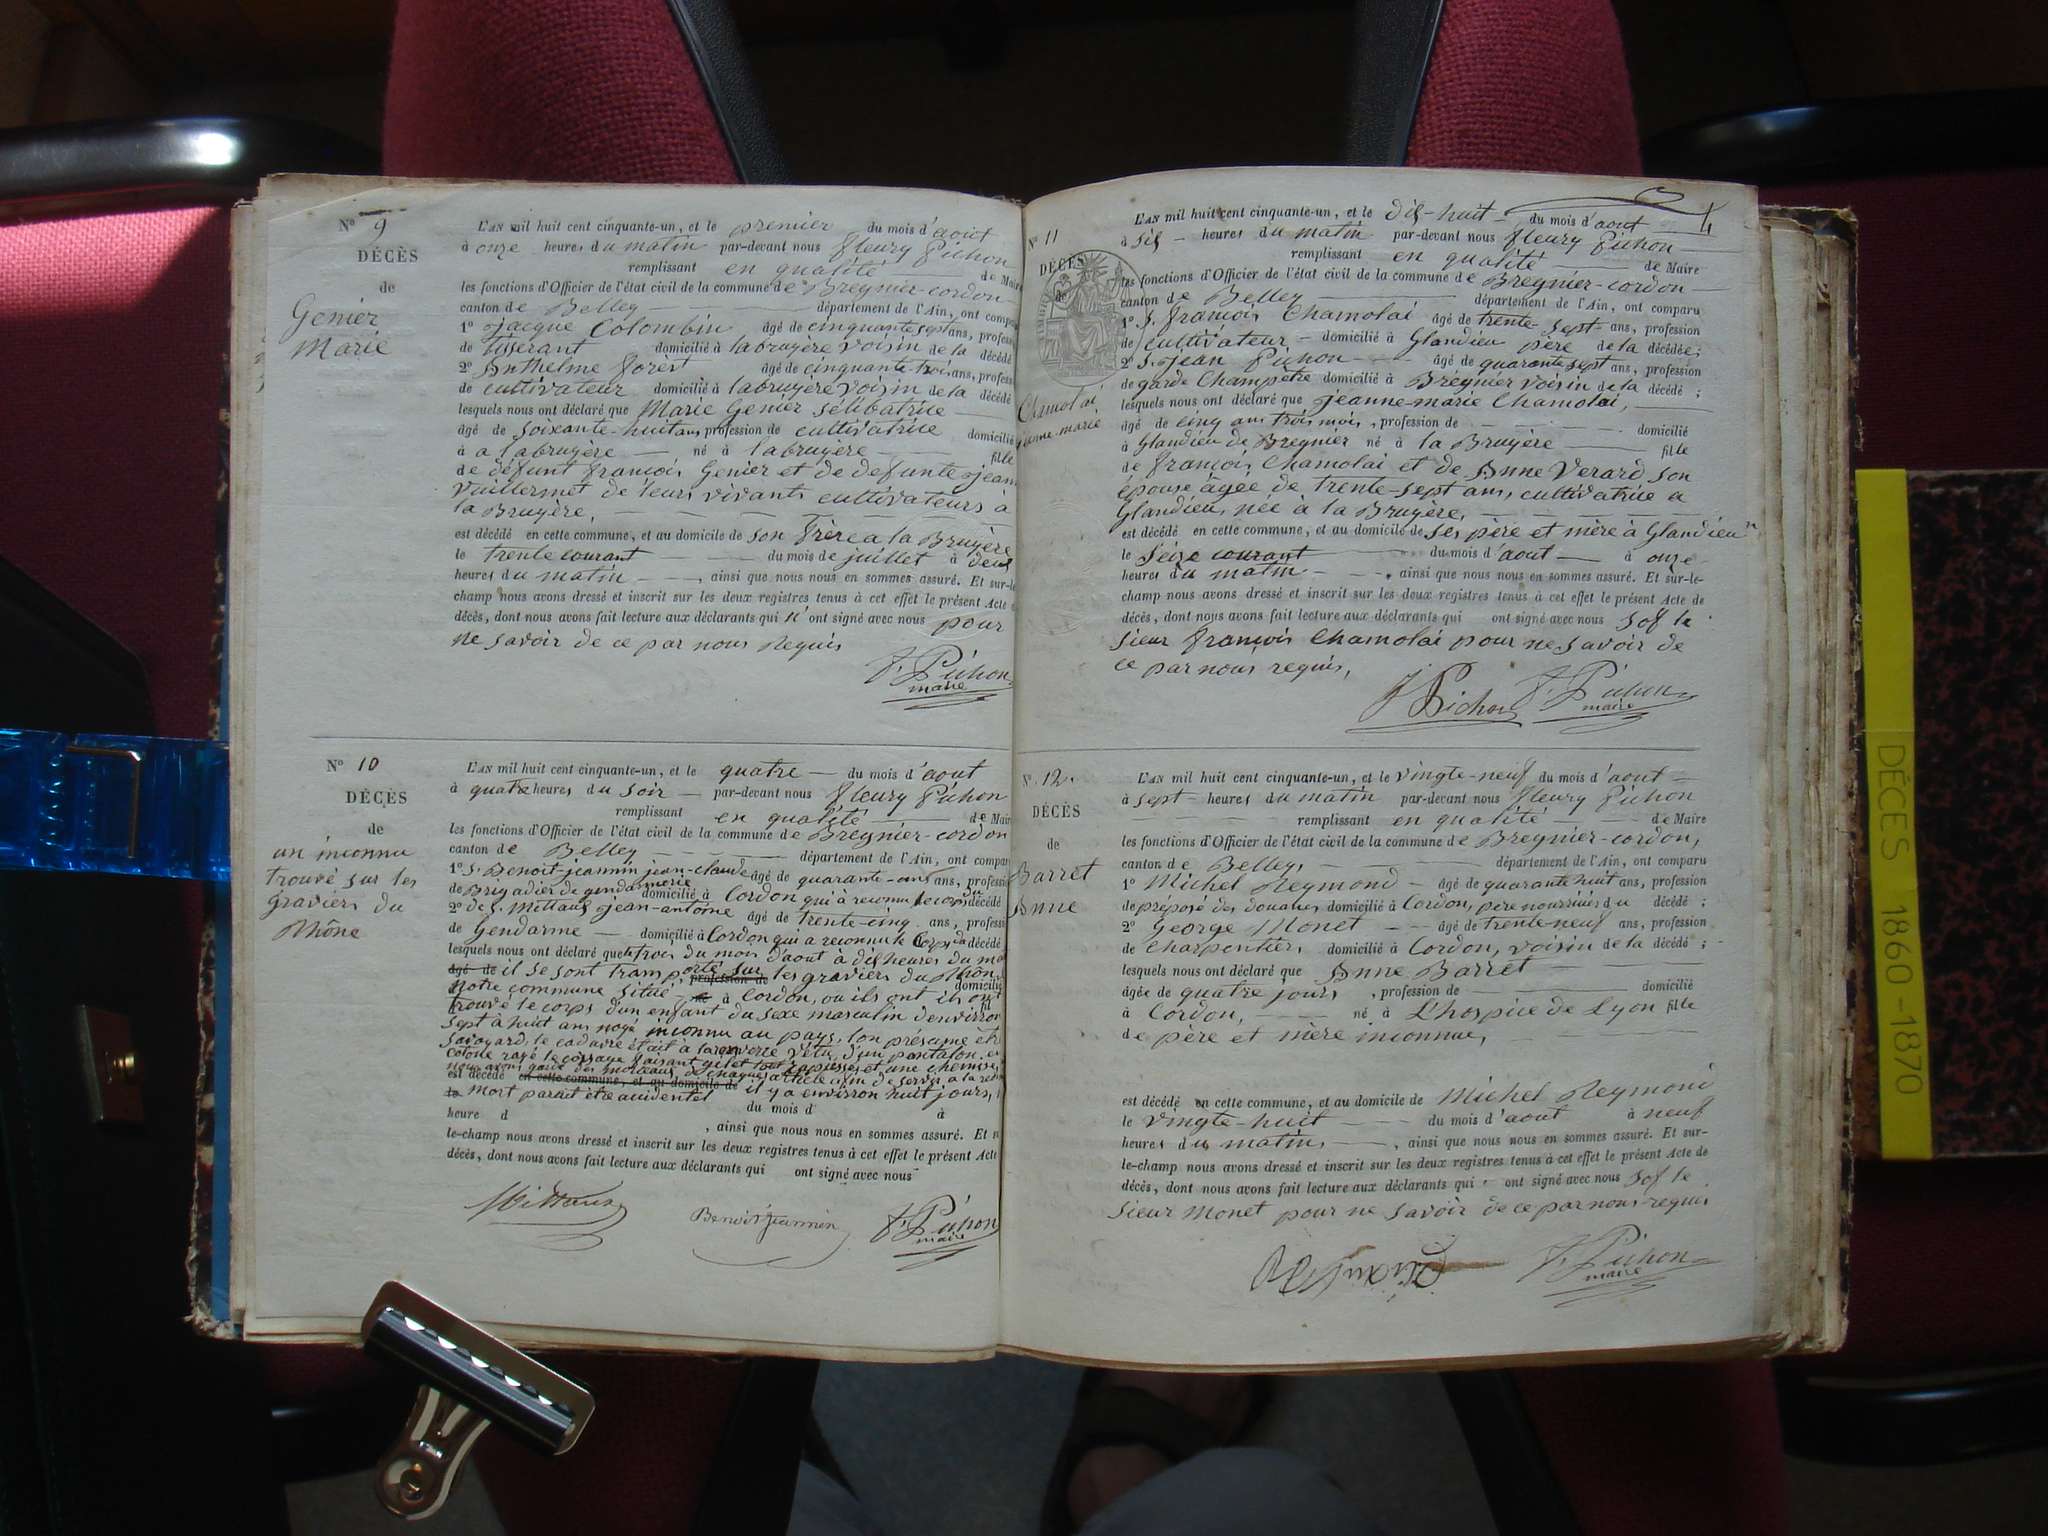 Nº 9
DÉCÈS
de
Genier
Marie
L'AN mil huit cent cinquante-un, et le premier du mois d'aout
à onze heures du matin par-devant nous fleury Pichon
remplissant en qualité de Maire
les fonctions d'Officier de l'état civil de la commune de Bregnier-cordon
canton de Belley département de l'Ain, ont compa
1º jacque Colombin âgé de cinquante sept ans, profes
de tisserant domicilié à labruyère voisin de la décédé
2º Anthelme forest âgé de cinquante trois ans, profess
de cultivateur domicilié à labruyère voisin de la décédé
lesquels nous ont déclaré que Marie Genier sélibatrice
âgé de soixante-huit ans profession de cultivatrice domicilié
à a labruyère né à labruyère fille
de défunt françois Genier et de defunte jean
Vuillermet de leurs vivants cultivateurs à
la Bruyère.
est décédé en cette commune, et au domicile de son frère a la Bruyère
le trente courant du mois de juillet à deux
heures du matin, ainsi que nous nous en sommes assuré. Et sur-le
champ nous avons dressé et inscrit sur les deux registres tenus à cet effet le présent Acte
décès, dont nous avons fait lecture aux déclarants qui n'ont signé avec nous pour
ne savoir de ce par nous Requis
F. Pichon
maire
Nº 10
DÉCÈS
de
un inconnu
trouvé sur les
graviers du
Rhône
L'AN mil huit cent cinquante-un, et le quatre du mois d'aout
à quatre heures du soir par-devant nous fleury Pichon
remplissant en qualité de Mair
les fonctions d'Officier de l'état civil de la commune de Bregnier-cordon
canton de Belley département de l'Ain, ont compar
1º S. Benoit-jeannin jean-claude âgé de quarante-un ans, professi
de Brigadier de gendarmerie domicilié à Cordon qui à reconnu le corps du décédé
2º de S. Mittaus jean-antoine âgé de trente-cinq ans, professi
de Gendarme domicilié à Cordon qui a reconnu le Corps du décédé
lesquels nous ont déclaré que le trois du mois d'aout à dix heures du ma
âgé de il se sont transporté sur profession de les graviers du Rhôn
notre commune situé à Cordon, ou ils ont domicilié
trouvé le corps d'un enfant du sexe masculin d'environ
sept à huit ans noyé inconnu au pays, l'on présume êtr
savoyard, le cadavre était à la renverse vêtu d'un pantalon en
colone rayé le corsage faisant gilet tout rapiessés et une chemise
nous avons gardé des morceaux de chaque article afin de servir a la
est décédé en cette commune, et au domicile de
la Mort parait être accidentel il y a environ huit jours,
heure d du mois d à
, ainsi que nous nous en sommes assuré. Et
le-champ nous avons dressé et inscrit sur les deux registres tenus à cet effet le présent Acte
décès, dont nous avons fait lecture aux déclarants qui ont signé avec nous
Mittaus
Benoit Jeannin
F. Pichon
maire
4
Nº 11
DÉCÈS
de
Chamolai
jeanne-marie
L'AN mil huit cent cinquante-un, et le dix-huit du mois d'aout
à six heures du matin par-devant nous fleury Pichon
remplissant en qualité de Maire
les fonctions d'Officier de l'état civil de la commune de Bregnier-cordon
canton de Belley département de l'Ain, ont comparu
1º S. françois Chamolai âgé de trente-sept ans, profession
de cultivateur domicilié à Glandieu père de la décédée;
2º S. jean Pichon âgé de quarante sept ans, profession
de garde Champetre domicilié à Bregnier voisin de la décédé ;
lesquels nous ont déclaré que jeanne-marie Chamolai,
âgé de cinq ans trois mois, profession de domicilié
à Glandieu de Bregnier né à la Bruyère fille
de françois Chamolai et de Anne Verard son
épouse âgée de trente-sept ans, cultivatrice a
Glandieu, née à la Bruyère,
est décédé en cette commune, et au domicile de ses père et mère à Glandieu
le seize courant du mois d'aout à onze
heures du matin, ainsi que nous nous en sommes assuré. Et sur-le-
champ nous avons dressé et inscrit sur les deux registres tenus à cet effet le présent Acte de
décès, dont nous avons fait lecture aux déclarants qui ont signé avec nous sof le
sieur françois Chamolai pour ne savoir de
ce par nous requis,
J Pichon
F. Pichon
maire
Nº 12.
DÉCÈS
de
Barret
Anne
L'AN mil huit cent cinquante-un, et le vingte-neuf du mois d'aout
à sept heures du matin par-devant nous fleury Pichon
remplissant en qualité de Maire
les fonctions d'Officier de l'état civil de la commune de Bregnier-cordon,
canton de Belley, département de l'Ain, ont comparu
1º Michel Reymond âgé de quarante huit ans, profession
de préposé des douanes domicilié à Cordon, père nourissier du décédé ;
2º George Monet âgé de trente-neuf ans, profession
de Charpentier, domicilié à Cordon, voisin de la décédé ;
lesquels nous ont déclaré que Anne Barret
âgée de quatre jours, profession de domicilié
à Cordon, né à L'hospice de Lyon fille
de père et mère inconnue,
est décédé en cette commune, et au domicile de Michel Reymond
le vingte-huit du mois d'aout à neuf
heures du matin, ainsi que nous nous en sommes assuré. Et sur-
le-champ nous avons dressé et inscrit sur les deux registres tenus à cet effet le présent Acte de
décès, dont nous avons fait lecture aux déclarants qui ont signé avec nous sof le
sieur Monet pour ne savoir de ce par nous requis
F. Pichon
maire
DÉCES 1860-1870